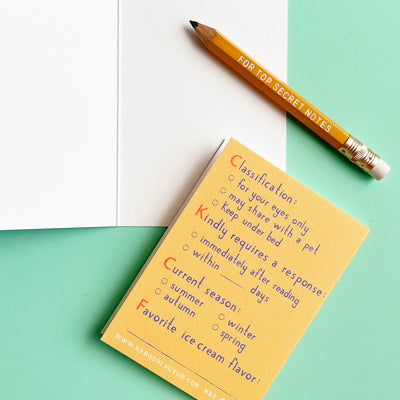 FOR TOP SECRET NOTES
Classification:
for your eyes only
may share with a pet
keep under bed
Kindly requires a response:
immediately after reading
within ____ days
Current season:
summer winter
autumn spring
Favorite ice cream flavor: